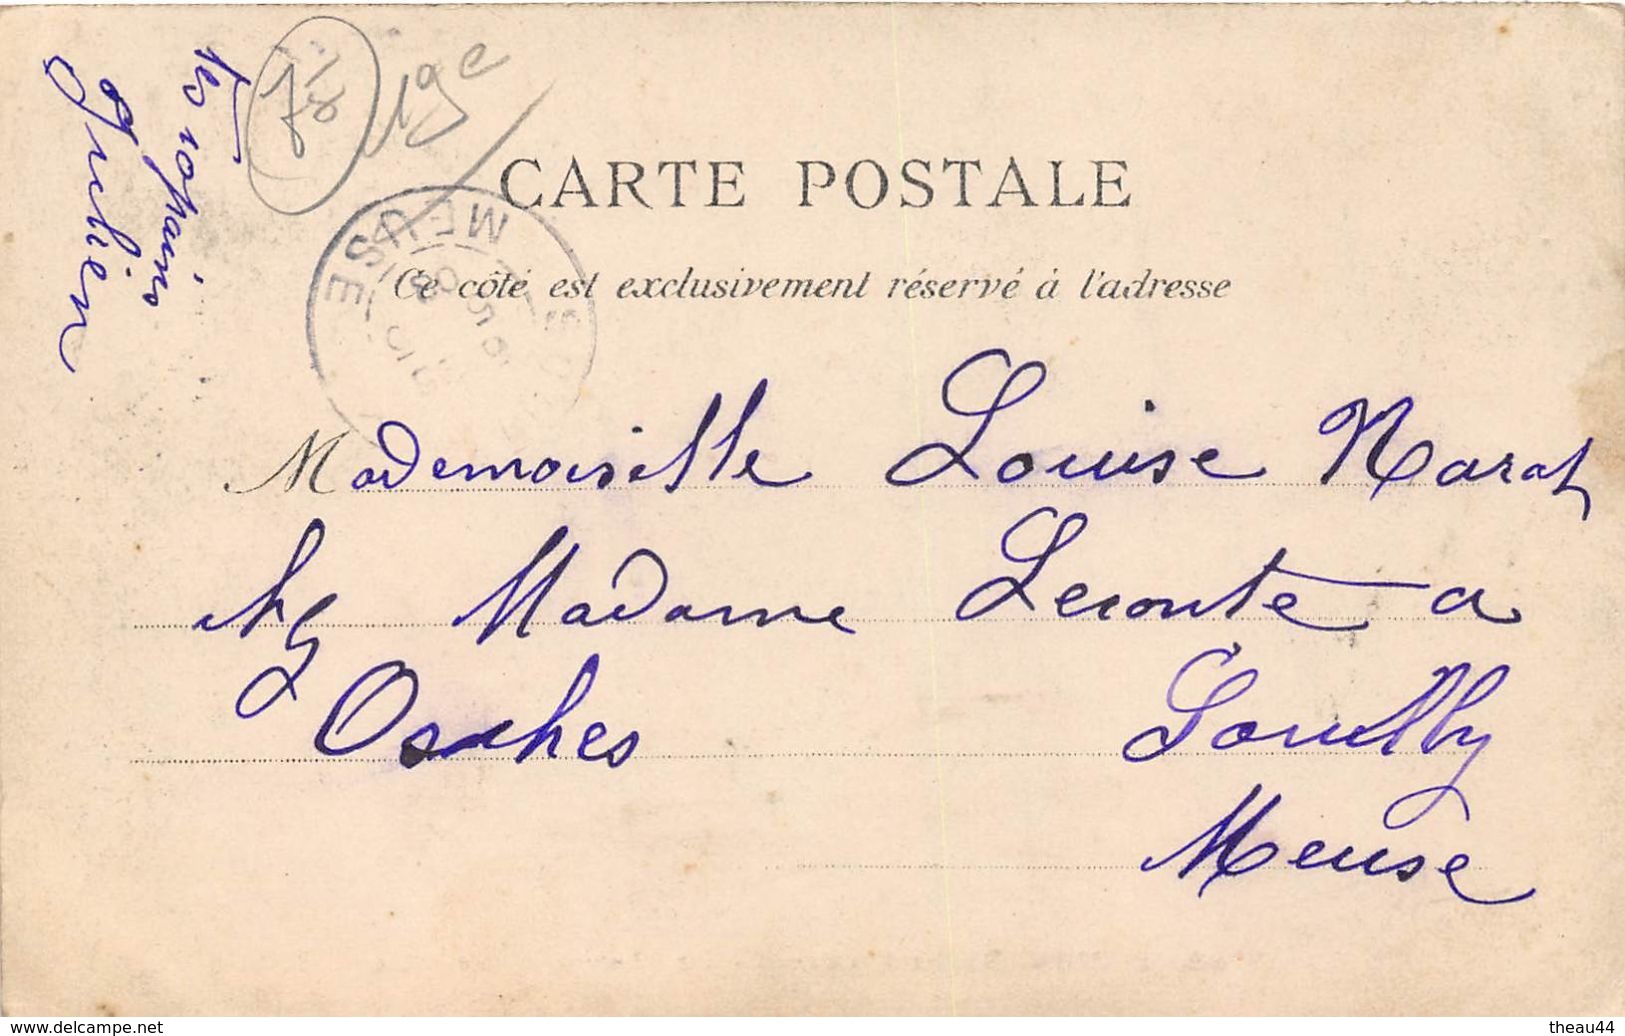 tes copains
Julien
19e
CARTE POSTALE
MEUSE
Ce côté est exclusivement réservé à l'adresse
Mademoiselle Louise Marat
chez Madame Leconte a
Osches Souilly
Meuse
www.delcampe.net
theau44